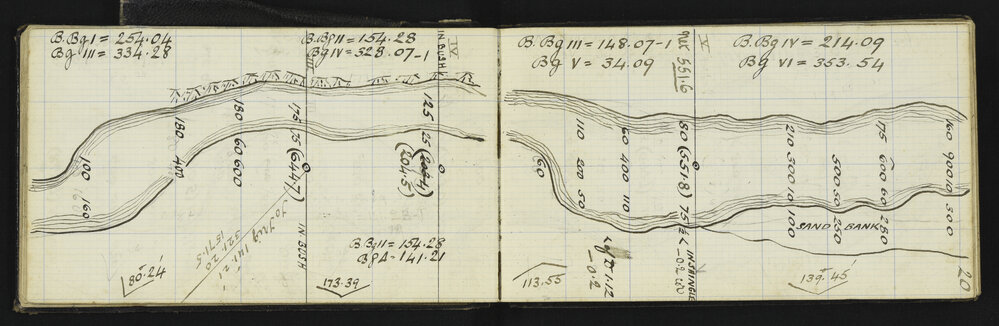 B.Bg I = 254.04
Bg III = 334.28
B.Bg II = 154.28
Bg IV = 328.07-1
IV
IN BUSH
180
180
60
600
175
25
(644.7)
125
25
(204.5)
100
160
400
IN BUSH
To Trig
141.21
321.20
1571.5
B Bg II = 154.28
Bg A = 141.21
80°.24'
173.39
B. Bg III = 148.07-1
Bg V = 34.09
V
551.6
B. Bg IV = 214.09
Bg VI = 353.54
60
110
200
50
60
400
110
80
(551.8)
75
210
300
10
100
500
50
250
175
600
60
250
160
900
10
300
SAND BANK
IN SHINGLE
1.12
-0.2
113.55
139.45'
20